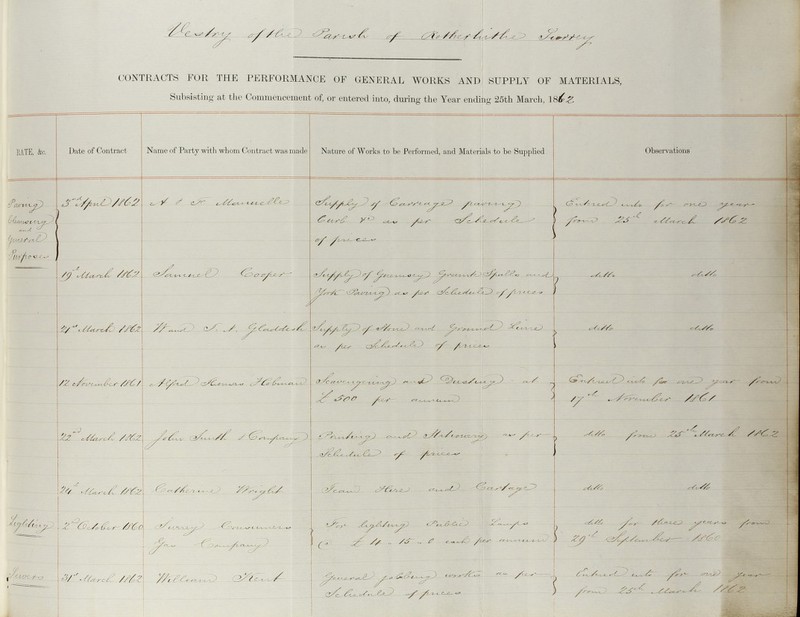 Vestry of the Parish of Rotherhithe Surrey
CONTRACTS FOR THE PERFORMANCE OF GENERAL WORKS AND SUPPLY OF MATERIALS,
Subsisting at the Commencement of, or entered into, during the Year ending 25th March, 1862
RATE, &c. Date of Contract Name of Party with whom Contract was made Nature of Works to be Performed, and Materials to be Supplied Observations
Paving
Cleansing
and
General
Purposes
3rd April 1862 A & F Manuelle Supply of Carriage paving Entered into for one year
Curb &c as per Schedule from 25th March 1862
of prices
19th March 1862 Samuel Cooper Supply of Guernsey Granite Spalls and ditto ditto
York Paving as per Schedule of prices
21st March 1862 and S. A. Supply of Stone and Ground Lime ditto ditto
as per Schedule of prices
12 November 1861 Alfred Thomas Scavengering and Dusting at Entered into for one year from
£500 per annum 17th November 1861
22nd March 1862 John Smith & Company Printing and Stationery as per ditto from 25th March 1862
Schedule of prices
24th March 1862 Catherine Wright Team Hire and Cartage ditto ditto
Lighting 2nd October 1860 Surrey Consumers For lighting Public Lamps ditto for three years from
Gas Company @ £4 - 15 - 0 each per annum 29th September 1860
Sewers 31st March 1862 William Kent General jobbing works as per Entered into for one year
Schedule of prices from 25th March 1862